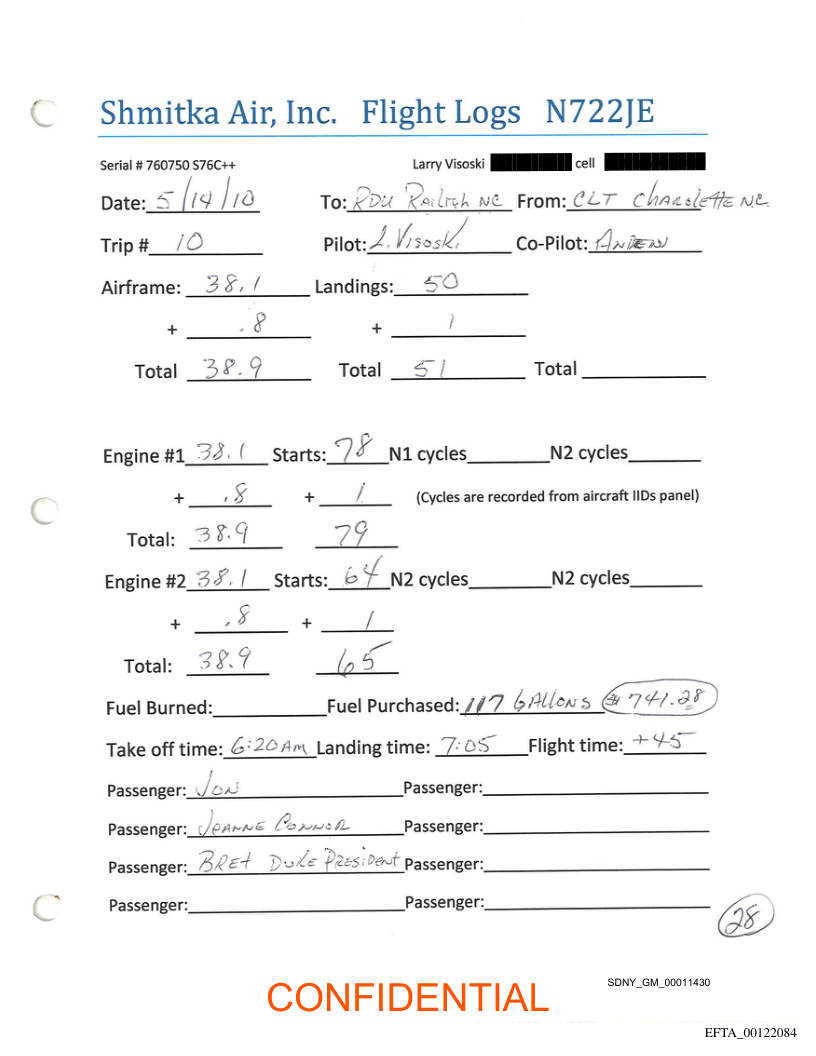 Shmitka Air, Inc. Flight Logs N722JE
Serial # 760750 S76C++ Larry Visoski cell
Date: 5/14/10 To: RDU Railigh NC From: CLT Charolette N.C.
Trip # 10 Pilot: L. Visoski Co-Pilot: Andrew
Airframe: 38.1 Landings: 50
+ .8 + 1
Total 38.9 Total 51 Total
Engine #1 38.1 Starts: 78 N1 cycles N2 cycles
+ .8 + 1 (Cycles are recorded from aircraft IIDs panel)
Total: 38.9 79
Engine #2 38.1 Starts: 64 N2 cycles N2 cycles
+ .8 + 1
Total: 38.9 65
Fuel Burned: Fuel Purchased: 117 GALLONS $741.28
Take off time: 6:20AM Landing time: 7:05 Flight time: +45
Passenger: Jon Passenger:
Passenger: Jeanne Connor Passenger:
Passenger: Bret Duke President Passenger:
Passenger: Passenger:
28
SDNY_GM_00011430
CONFIDENTIAL
EFTA_00122084